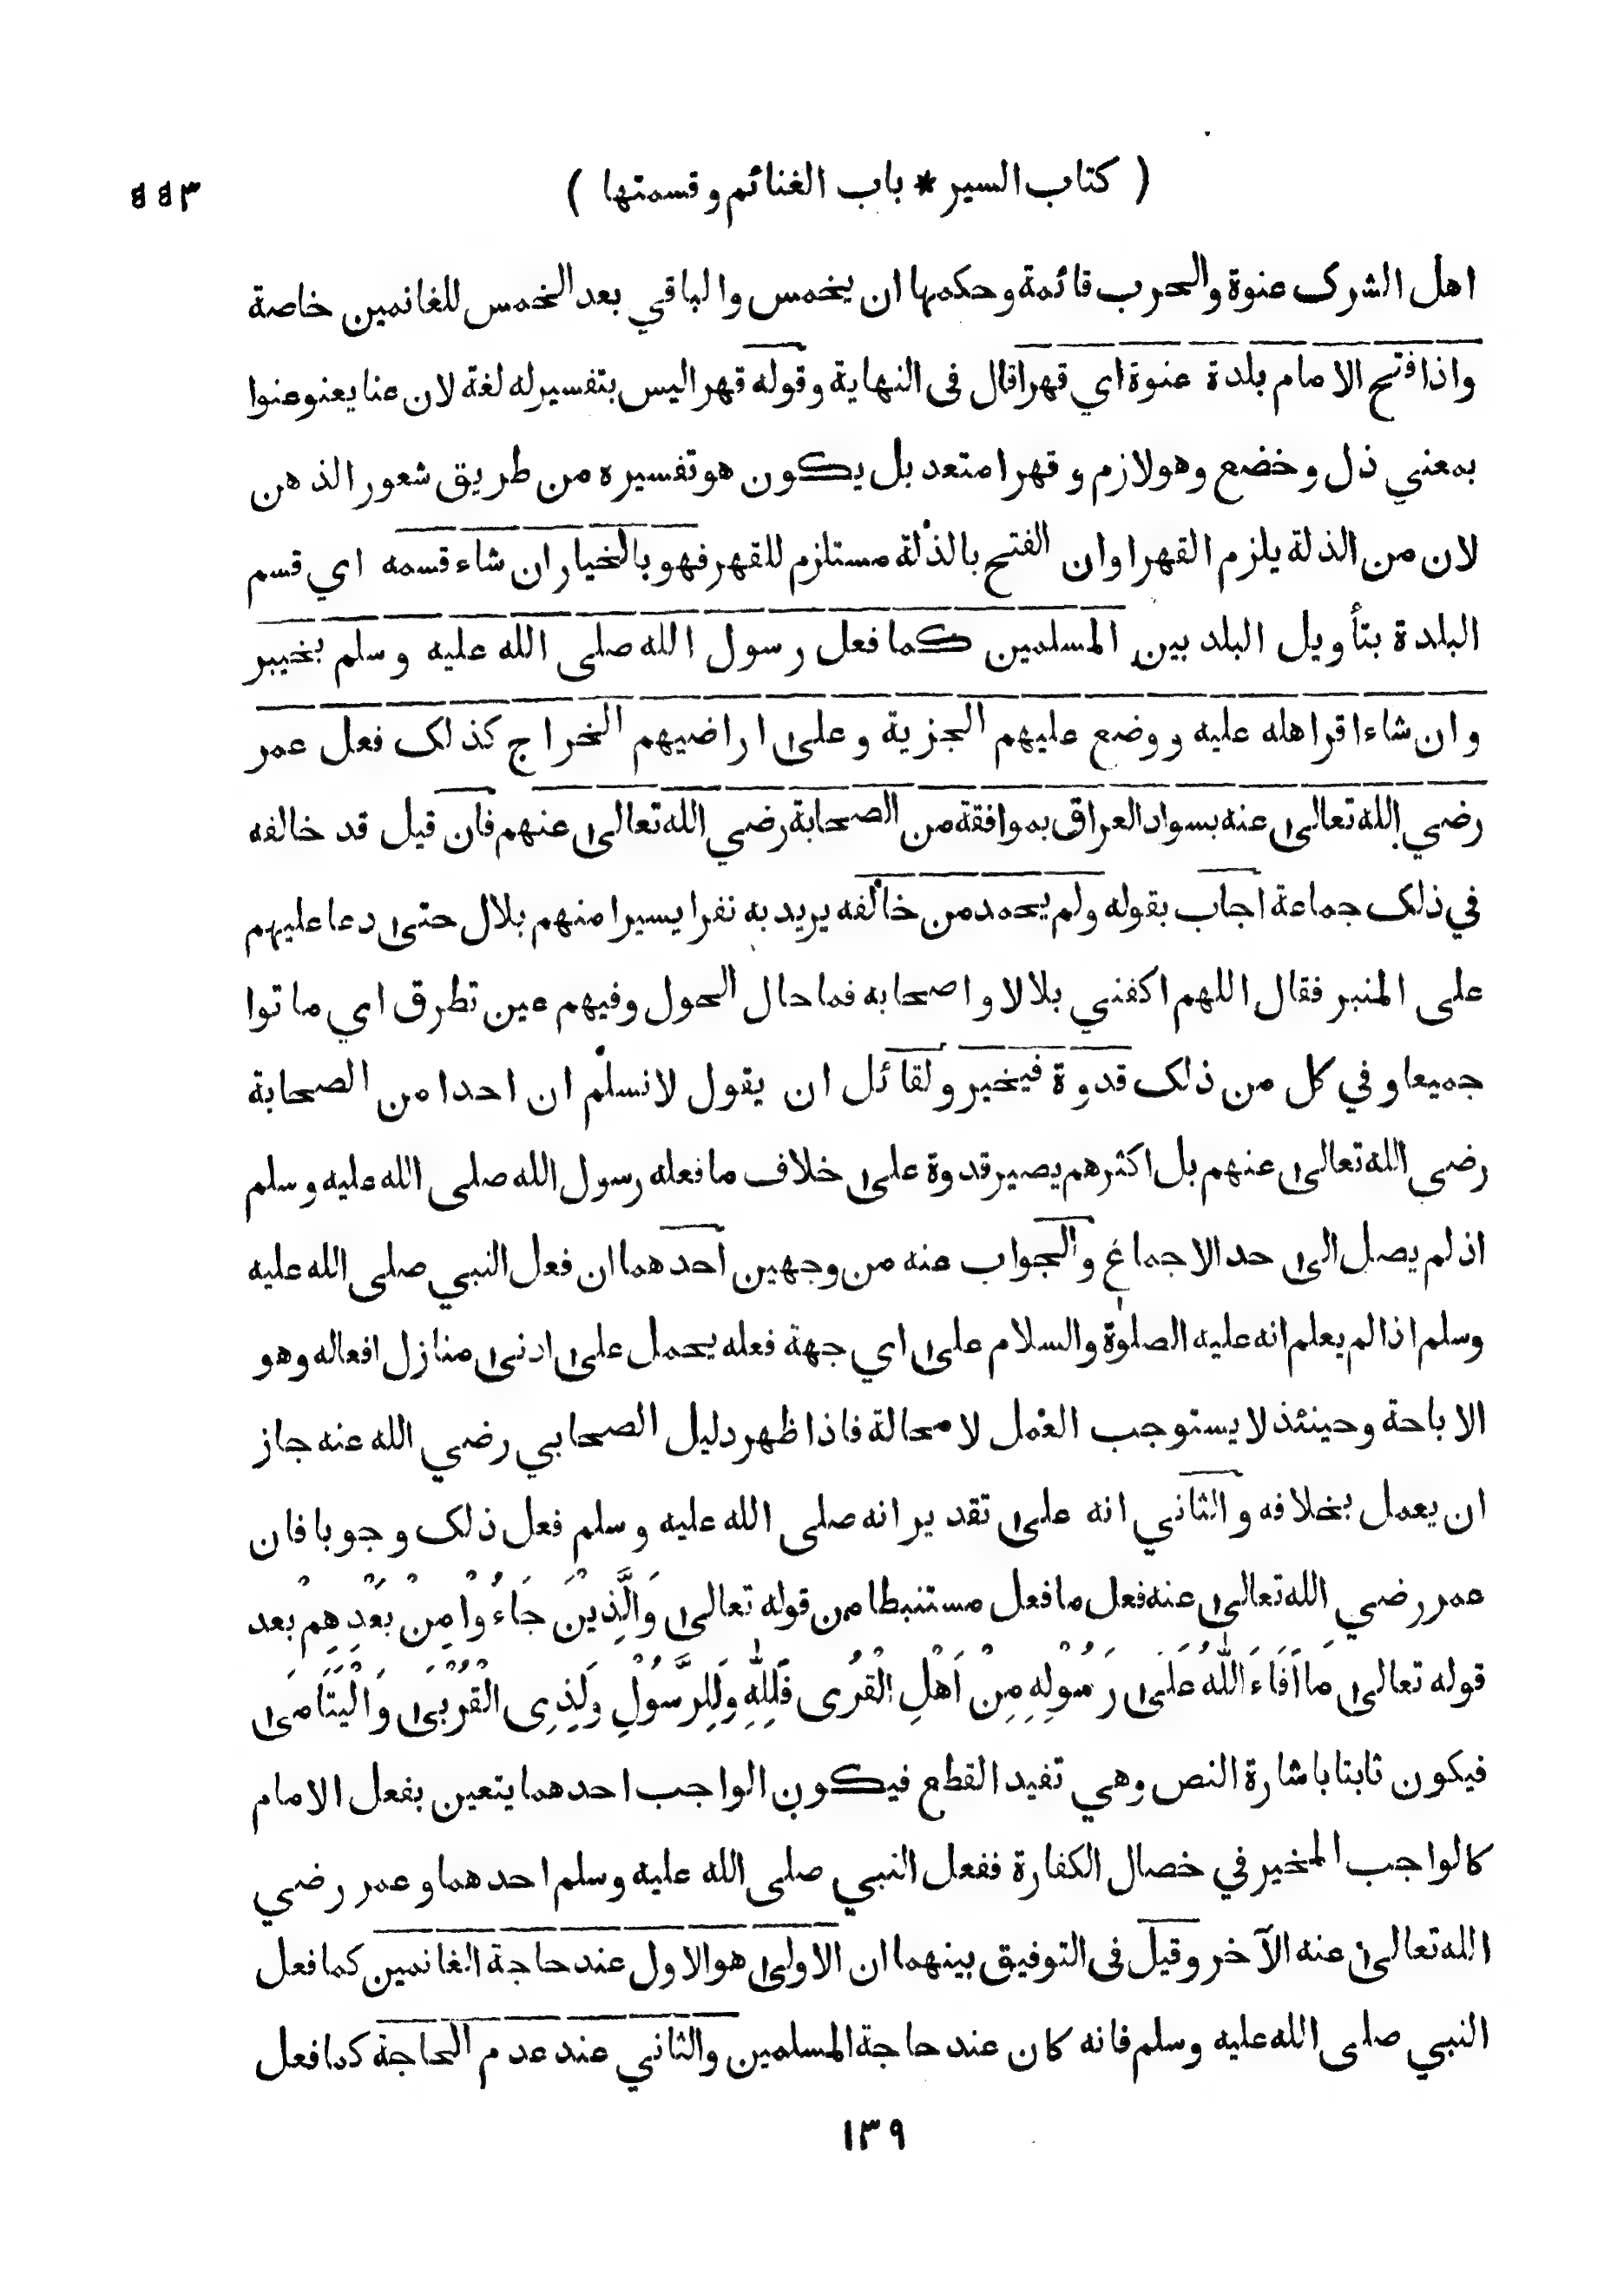 ( كتاب السير * باب الغنائم وقسمتها ) ٤٤٣
اهل الشرك عنوة والحرب قائمة وحكمها ان يخمس والباقي بعد الخمس للغانمين خاصة
واذا فتح الامام بلدة عنوة اي قهرا قال فى النهاية وقوله قهرا ليس بتفسير له لغة لان عنا يعنو عنوا
بمعني ذل وخضع وهو لازم وقهرا متعد بل يكون هو تفسيره من طريق شعور الذهن
لان من الذلة يلزم القهر او ان الفتح بالذلة مستلزم للقهر فهو بالخيار ان شاء قسمه اي قسم
البلدة بتأويل البلد بين المسلمين كما فعل رسول الله صلى الله عليه وسلم بخيبر
وان شاء اقر اهله عليه ووضع عليهم الجزية وعلى اراضيهم الخراج كذلك فعل عمر
رضي الله تعالى عنه بسواد العراق بموافقة من الصحابة رضي الله تعالى عنهم فان قيل قد خالفه
في ذلك جماعة اجاب بقوله ولم يحمد من خالفه يريد به نفرا يسيرا منهم بلال حتى دعا عليهم
على المنبر فقال اللهم اكفني بلالا واصحابه فما حال الحول وفيهم عين تطرق اي ماتوا
جميعا وفي كل من ذلك قدوة فيخير ولقائل ان يقول لا نسلم ان احدا من الصحابة
رضي الله تعالى عنهم بل اكثرهم يصير قدوة على خلاف ما فعله رسول الله صلى الله عليه وسلم
اذ لم يصل الى حد الاجماع والجواب عنه من وجهين احدهما ان فعل النبي صلى الله عليه
وسلم اذا لم يعلم انه عليه الصلوة والسلام على اي جهة فعله يحمل على ادنى منازل افعاله وهو
الاباحة وحينئذ لا يستوجب العمل لا محالة فاذا ظهر دليل الصحابي رضي الله عنه جاز
ان يعمل بخلافه والثاني انه على تقدير انه صلى الله عليه وسلم فعل ذلك وجوبا فان
عمر رضي الله تعالى عنه فعل ما فعل مستنبطا من قوله تعالى وَالَّذِيْنَ جَاءُوْا مِنْ بَعْدِهِمْ بعد
قوله تعالى مَا اَفَاءَ اللّٰهُ عَلَى رَسُوْلِهِ مِنْ اَهْلِ الْقُرَى فَلِلّٰهِ وَلِلرَّسُوْلِ وَلِذِى الْقُرْبَى وَالْيَتَامَى
فيكون ثابتا باشارة النص وهي تفيد القطع فيكون الواجب احدهما يتعين بفعل الامام
كالواجب المخير في خصال الكفارة ففعل النبي صلى الله عليه وسلم احدهما وعمر رضي
الله تعالى عنه الآخر وقيل فى التوفيق بينهما ان الاولى هو الاول عند حاجة الغانمين كما فعل
النبي صلى الله عليه وسلم فانه كان عند حاجة المسلمين والثاني عند عدم الحاجة كما فعل
١٣٩